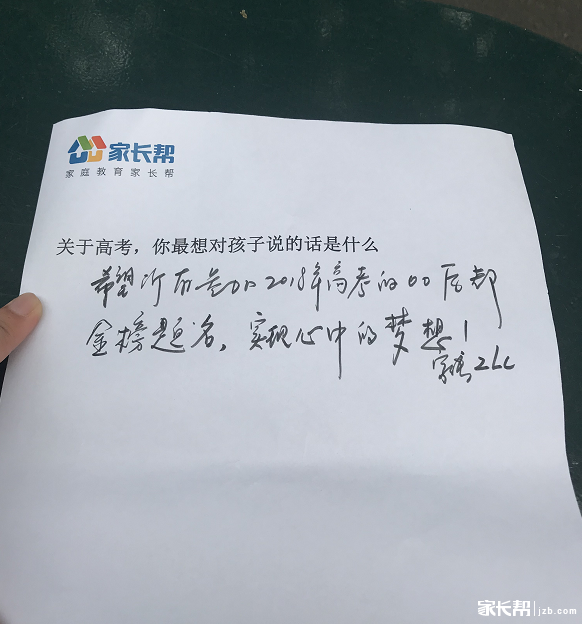 家长帮
家庭教育家长帮
关于高考，你最想对孩子说的话是什么
希望所有参加2018年高考的00后都
金榜题名，实现心中的梦想！
ZLC
家长帮 jzb.com